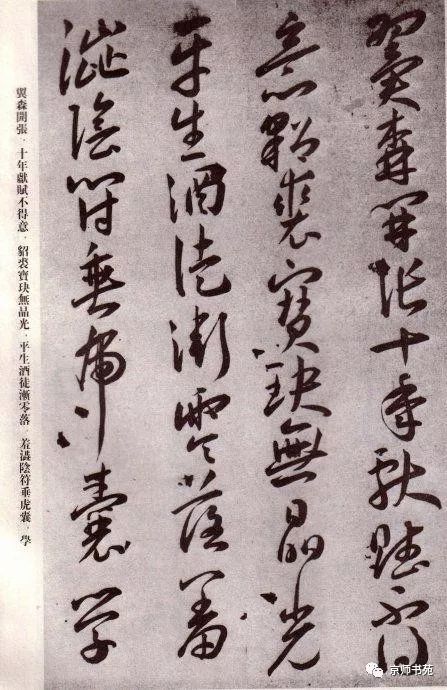 翼森開張十年獻賦不得
意貂裘寶玦無晶光
平生酒徒漸零落羞
澁陰符垂虎囊學
翼森開張．十年獻賦不得意．貂裘寶玦無晶光．平生酒徒漸零落．羞澁陰符垂虎囊．學
京师书苑